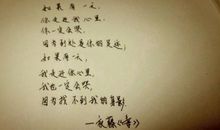 如果有一天,
你走进我心里,
你一定会哭,
因为到处是你的足迹,
如果有一天,
我走进你心里,
我也一定会哭,
因为找不到我的身影,